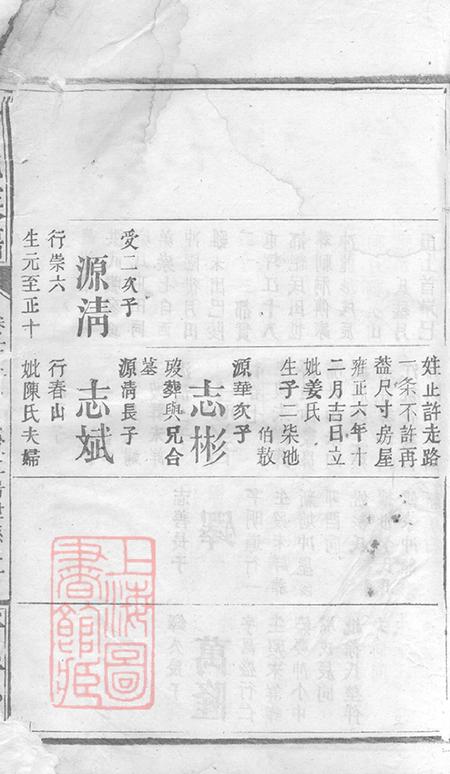 受二次子
源清
行崇六
生元至正十
姓止許走路
一条不許再
葢尺寸房屋
雍正六年十
二月吉日立
妣姜氏
生子二柒池
伯敖
源華次子
志彬
歿葬與兄合
墓
源清長子
志斌
行春山
妣陳氏夫婦
上海圖
書館藏